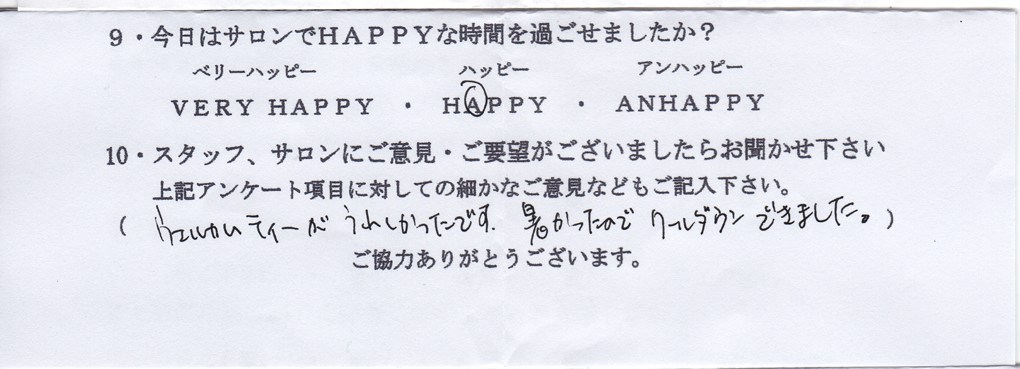 9・今日はサロンでHAPPYな時間を過ごせましたか？
ベリーハッピー　ハッピー　アンハッピー
VERY HAPPY ・ HAPPY ・ ANHAPPY
10・スタッフ、サロンにご意見・ご要望がございましたらお聞かせ下さい
上記アンケート項目に対しての細かなご意見などもご記入下さい。
( ウェルカムティーがうれしかったです. 暑かったので クールダウンできました。)
ご協力ありがとうございます。